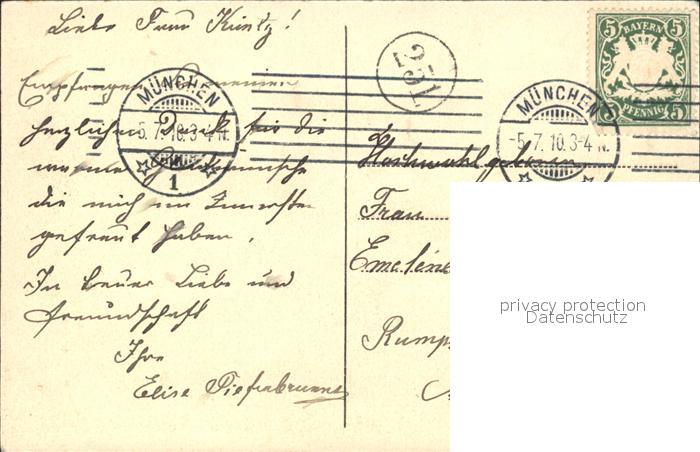 Liebe Frau Kuntz!
Empfangen Sie meinen
herzlichen Dank für die
warmen Glückwünsche
die mich im Innersten
gefreut haben.
In treuer Liebe und
Freundschaft
Ihre
Elise
MÜNCHEN
5.7.10.3-4 N.
1
MÜNCHEN
-5.7.10.3-4 N.
BAYERN
5 5
PFENNIG
5 5
Hochwohlgeboren
Frau
Emeline
Rump
privacy protection
Datenschutz